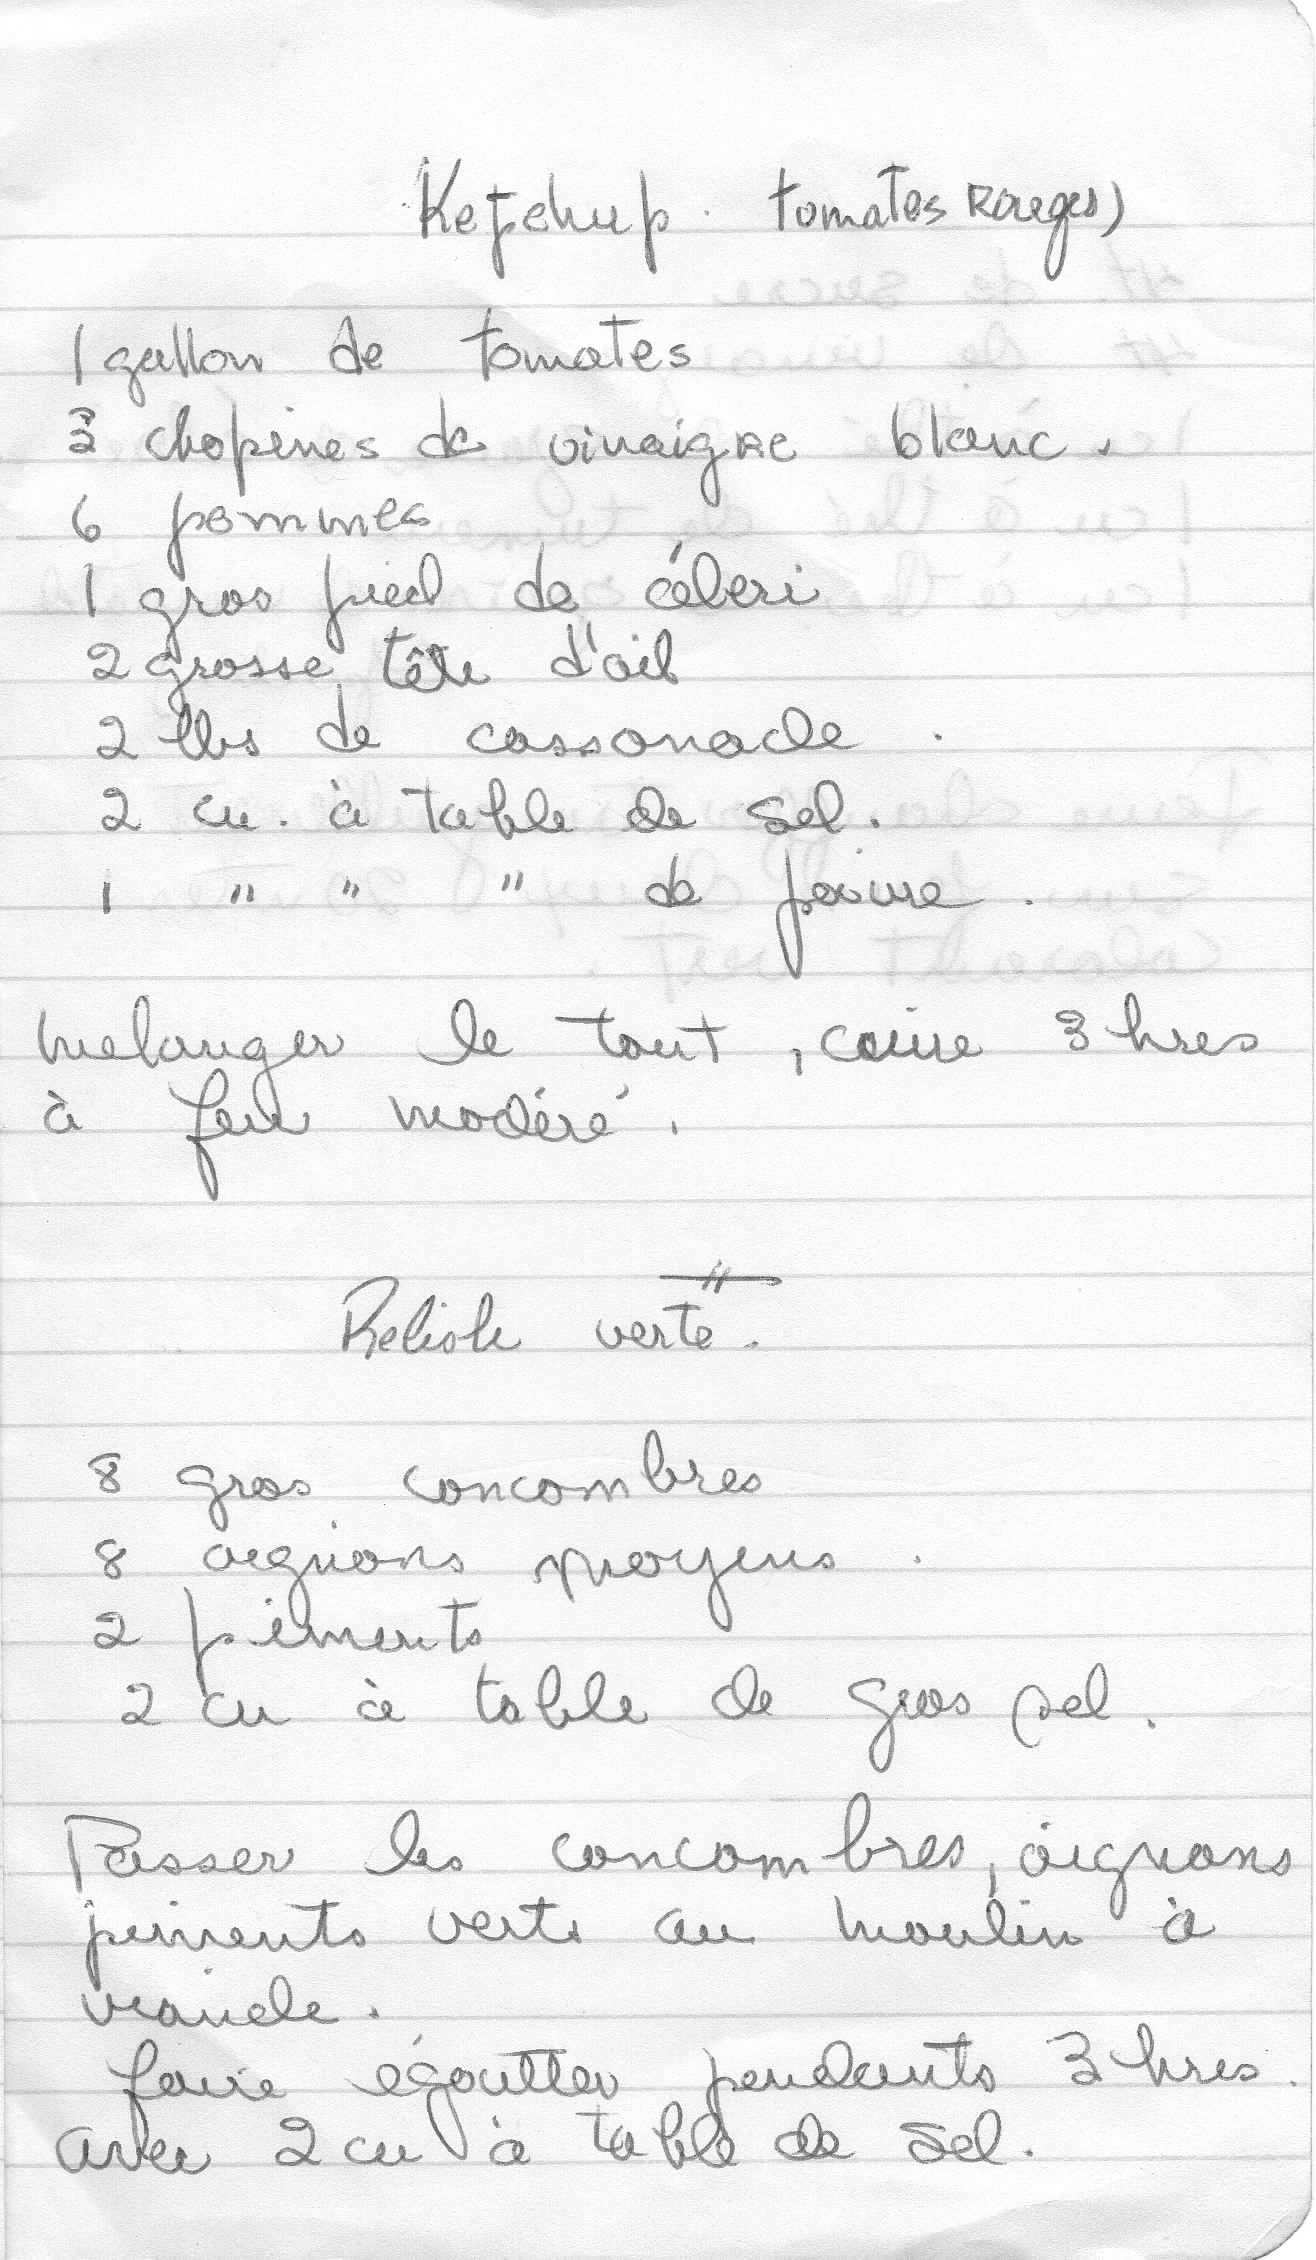 Ketchup. tomates Rouges)
1 gallon de tomates
3 chopines de vinaigre blanc.
6 pommes
1 gros pied de céleri
2 grosse tête d'ail
2 lbs de cassonade.
2 cu. à table de sel.
1 " " " de poivre.
melanger le tout, cuire 3 hres
à feu modéré.
"
Relish verte.
8 gros concombres
8 oignons moyens.
2 piments
2 cu à table de gros sel.
Passer les concombres, oignons
piments verts au moulin à
viande.
faire égoutter pendants 3 hres.
avec 2 cu à table de sel.